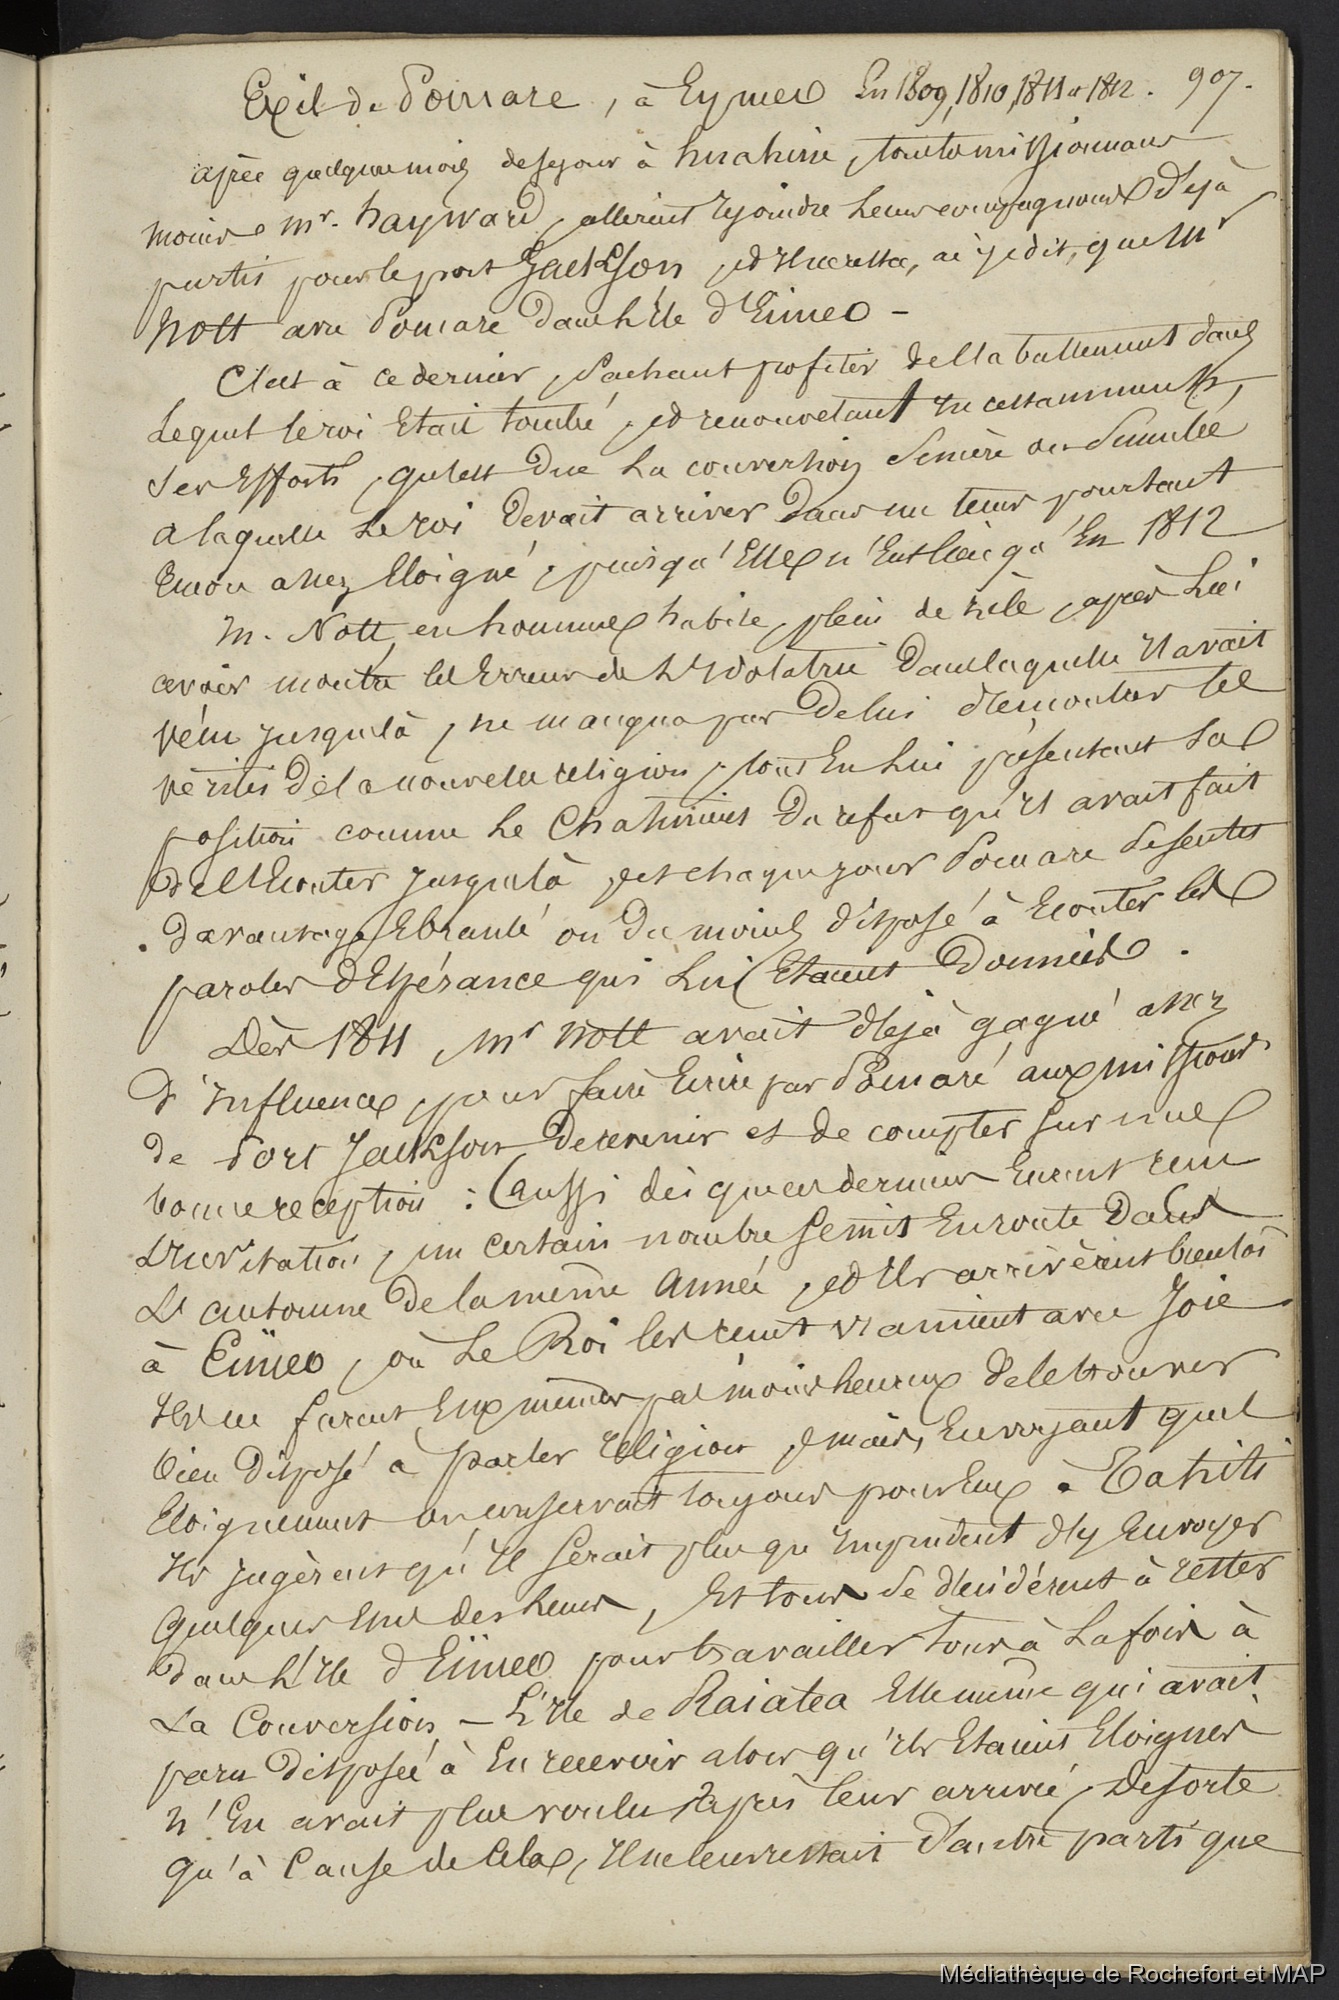 Exil de Pomare, à Eymeo En 1809, 1810, 1811 et 1812. 907.
après quelques mois de séjour à huahine, tous les missionnaires
moins Mr. hayward, allerent rejoindre leurs compagnons déjà
partis pour le port Jackson, et il ne resta, ai-je dit, que Mr
Nott avec Pomare dans l'ile d'Eimeo -
C'est à ce dernier, sachant profiter de l'abattement dans
lequel le roi était tombé, et renouvelant incessamment,
ses efforts, qu'est due la conversion sincère ou simulée
à laquelle le roi devait arriver dans un tems pourtant
encore assez éloigné, puisqu'elle n'eut lieu qu'en 1812
M. Nott, en homme habile, plein de zèle, après lui
avoir montré les erreurs de l'idolatrie dans laquelle il avait
vécu jusque là, ne manqua pas de lui démontrer les
vérités de la nouvelle religion, tout en lui présentant sa
position comme le chatiment du refus qu'il avait fait
de l'écouter jusque là, et chaque jour Pomare se sentit
davantage ébranlé ou du moins disposé à écouter les
paroles d'espérance qui lui étaient données.
Dès 1811, Mr Nott avait déjà gagné assez
d'influence, pour faire écrire par Pomaré aux missionres
de Port Jackson de revenir et de compter sur une
bonne reception : Aussi dès que ces derniers eurent reçu
l'invitation, un certain nombre se mit en route dans
l'automne de la même année, et ils arrivèrent bientôt
à Eimeo, où le Roi les reçut vraiment avec joie
Ils ne furent eux mêmes pas moins heureux de le trouver
bien disposé à parler religion, mais, en voyant quel
éloignement on conservait toujours pour eux à Tahiti
ils jugèrent qu'il serait plus qu'imprudent d'y envoyer
quelques uns des leurs, et tous se décidèrent à rester
dans l'ile d'Eimeo pour travailler tous à la fois à
la conversion - L'ile de Raiatea elle même qui avait
paru disposée à en recevoir alors qu'ils étaient éloignés
n'en avait plus voulu après leur arrivée, de sorte
qu'à cause de cela, il ne leur restait d'autre parti que
Médiathèque de Rochefort et MAP